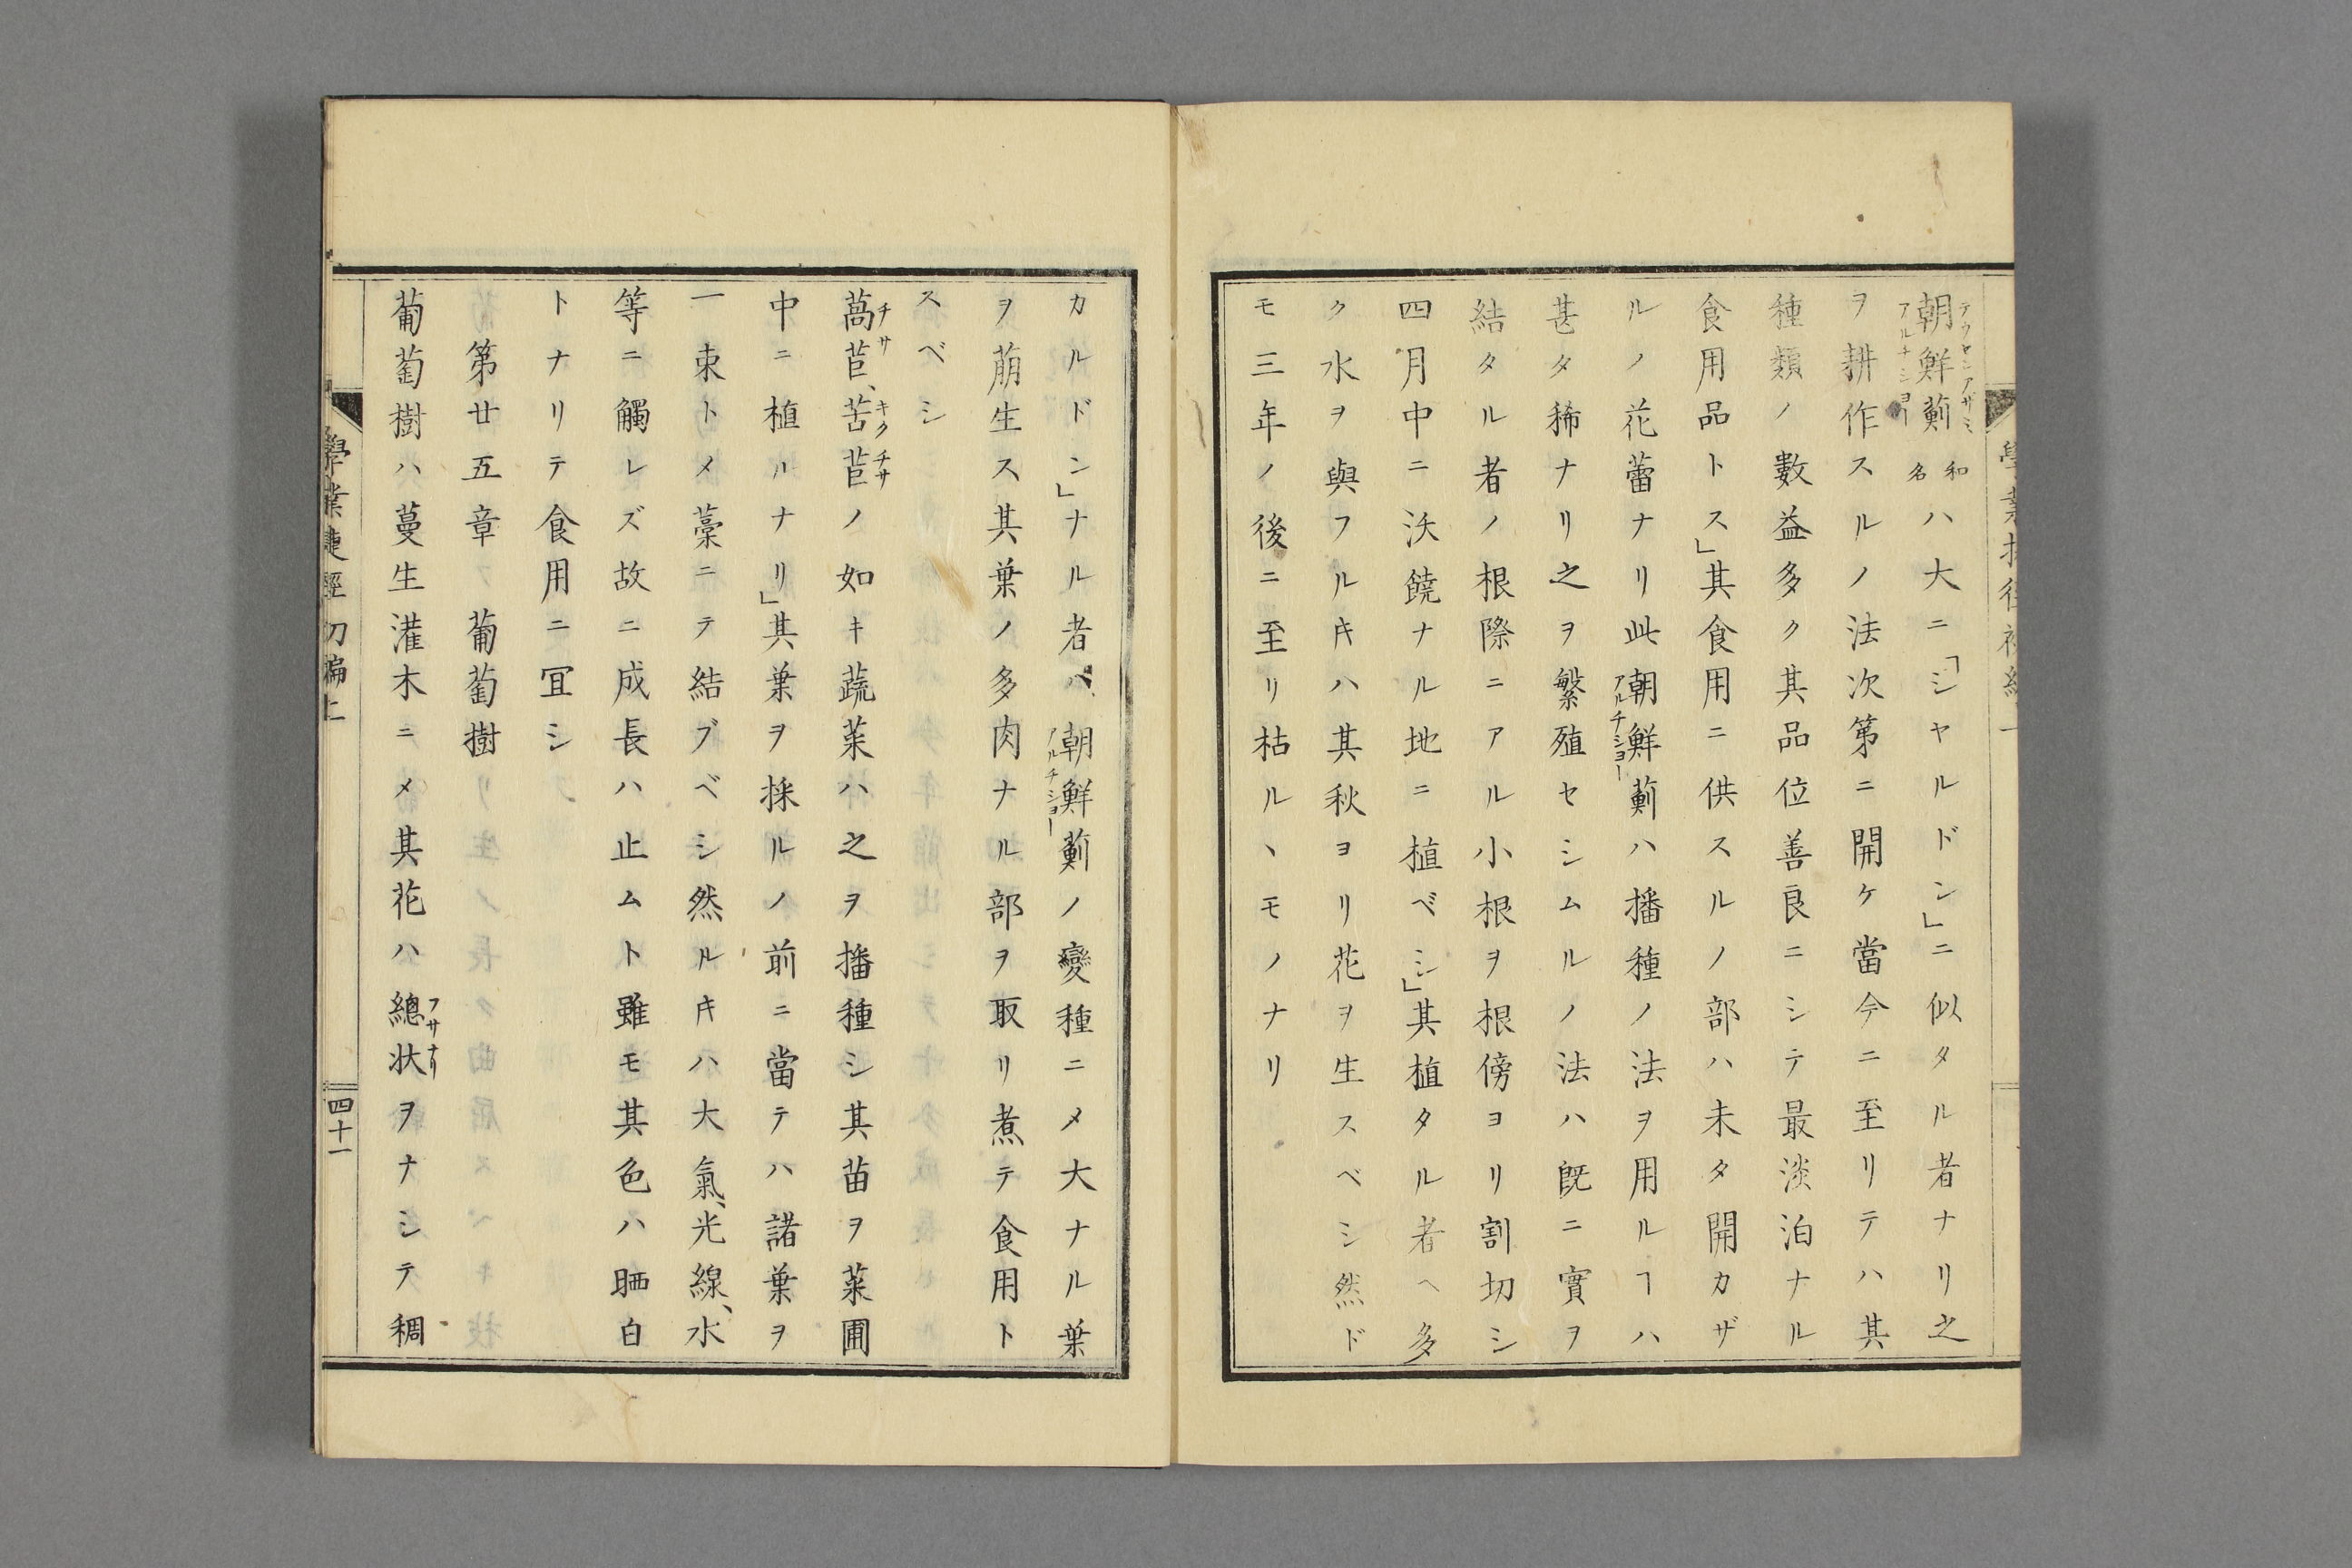 朝鮮薊和名ハ大ニ「シャルドン」ニ似タル者ナリ之
テウセンアザミ
アルチショー
ヲ耕作スルノ法次第ニ開ケ當今ニ至リテハ其
種類ノ數益多ク其品位善良ニシテ最淡泊ナル
食用品トス」其食用ニ供スルノ部ハ未タ開カザ
ルノ花蕾ナリ此朝鮮薊ハ播種ノ法ヲ用ルヿハ
アルチショー
甚タ稀ナリ之ヲ繁殖セシムルノ法ハ既ニ實ヲ
結タル者ノ根際ニアル小根ヲ根傍ヨリ割切シ
四月中ニ沃饒ナル地ニ植ベシ」其植タル者ヘ多
ク水ヲ與フルキハ其秋ヨリ花ヲ生スベシ然ド
モ三年ノ後ニ至リ枯ルヽモノナリ
カルドン」ナル者ハ、朝鮮薊ノ變種ニメ大ナル葉
アルチショー
ヲ萠生ス其葉ノ多肉ナル部ヲ取リ煮テ食用ト
スベシ
萵苣、苦苣ノ如キ蔬菜ハ之ヲ播種シ其苗ヲ菜圃
チサ
キクチサ
中ニ植ルナリ」其葉ヲ採ルノ前ニ當テハ諸葉ヲ
一束トメ藁ニテ結ブベシ然ルキハ大氣、光線、水
等ニ觸レズ故ニ成長ハ止ムト雖モ其色ハ晒白
トナリテ食用ニ冝シ
第廿五章　葡萄樹
葡萄樹ハ蔓生灌木ニメ其花ハ總状ヲナシテ稠
フサナリ
學業捷徑初編上
四十一